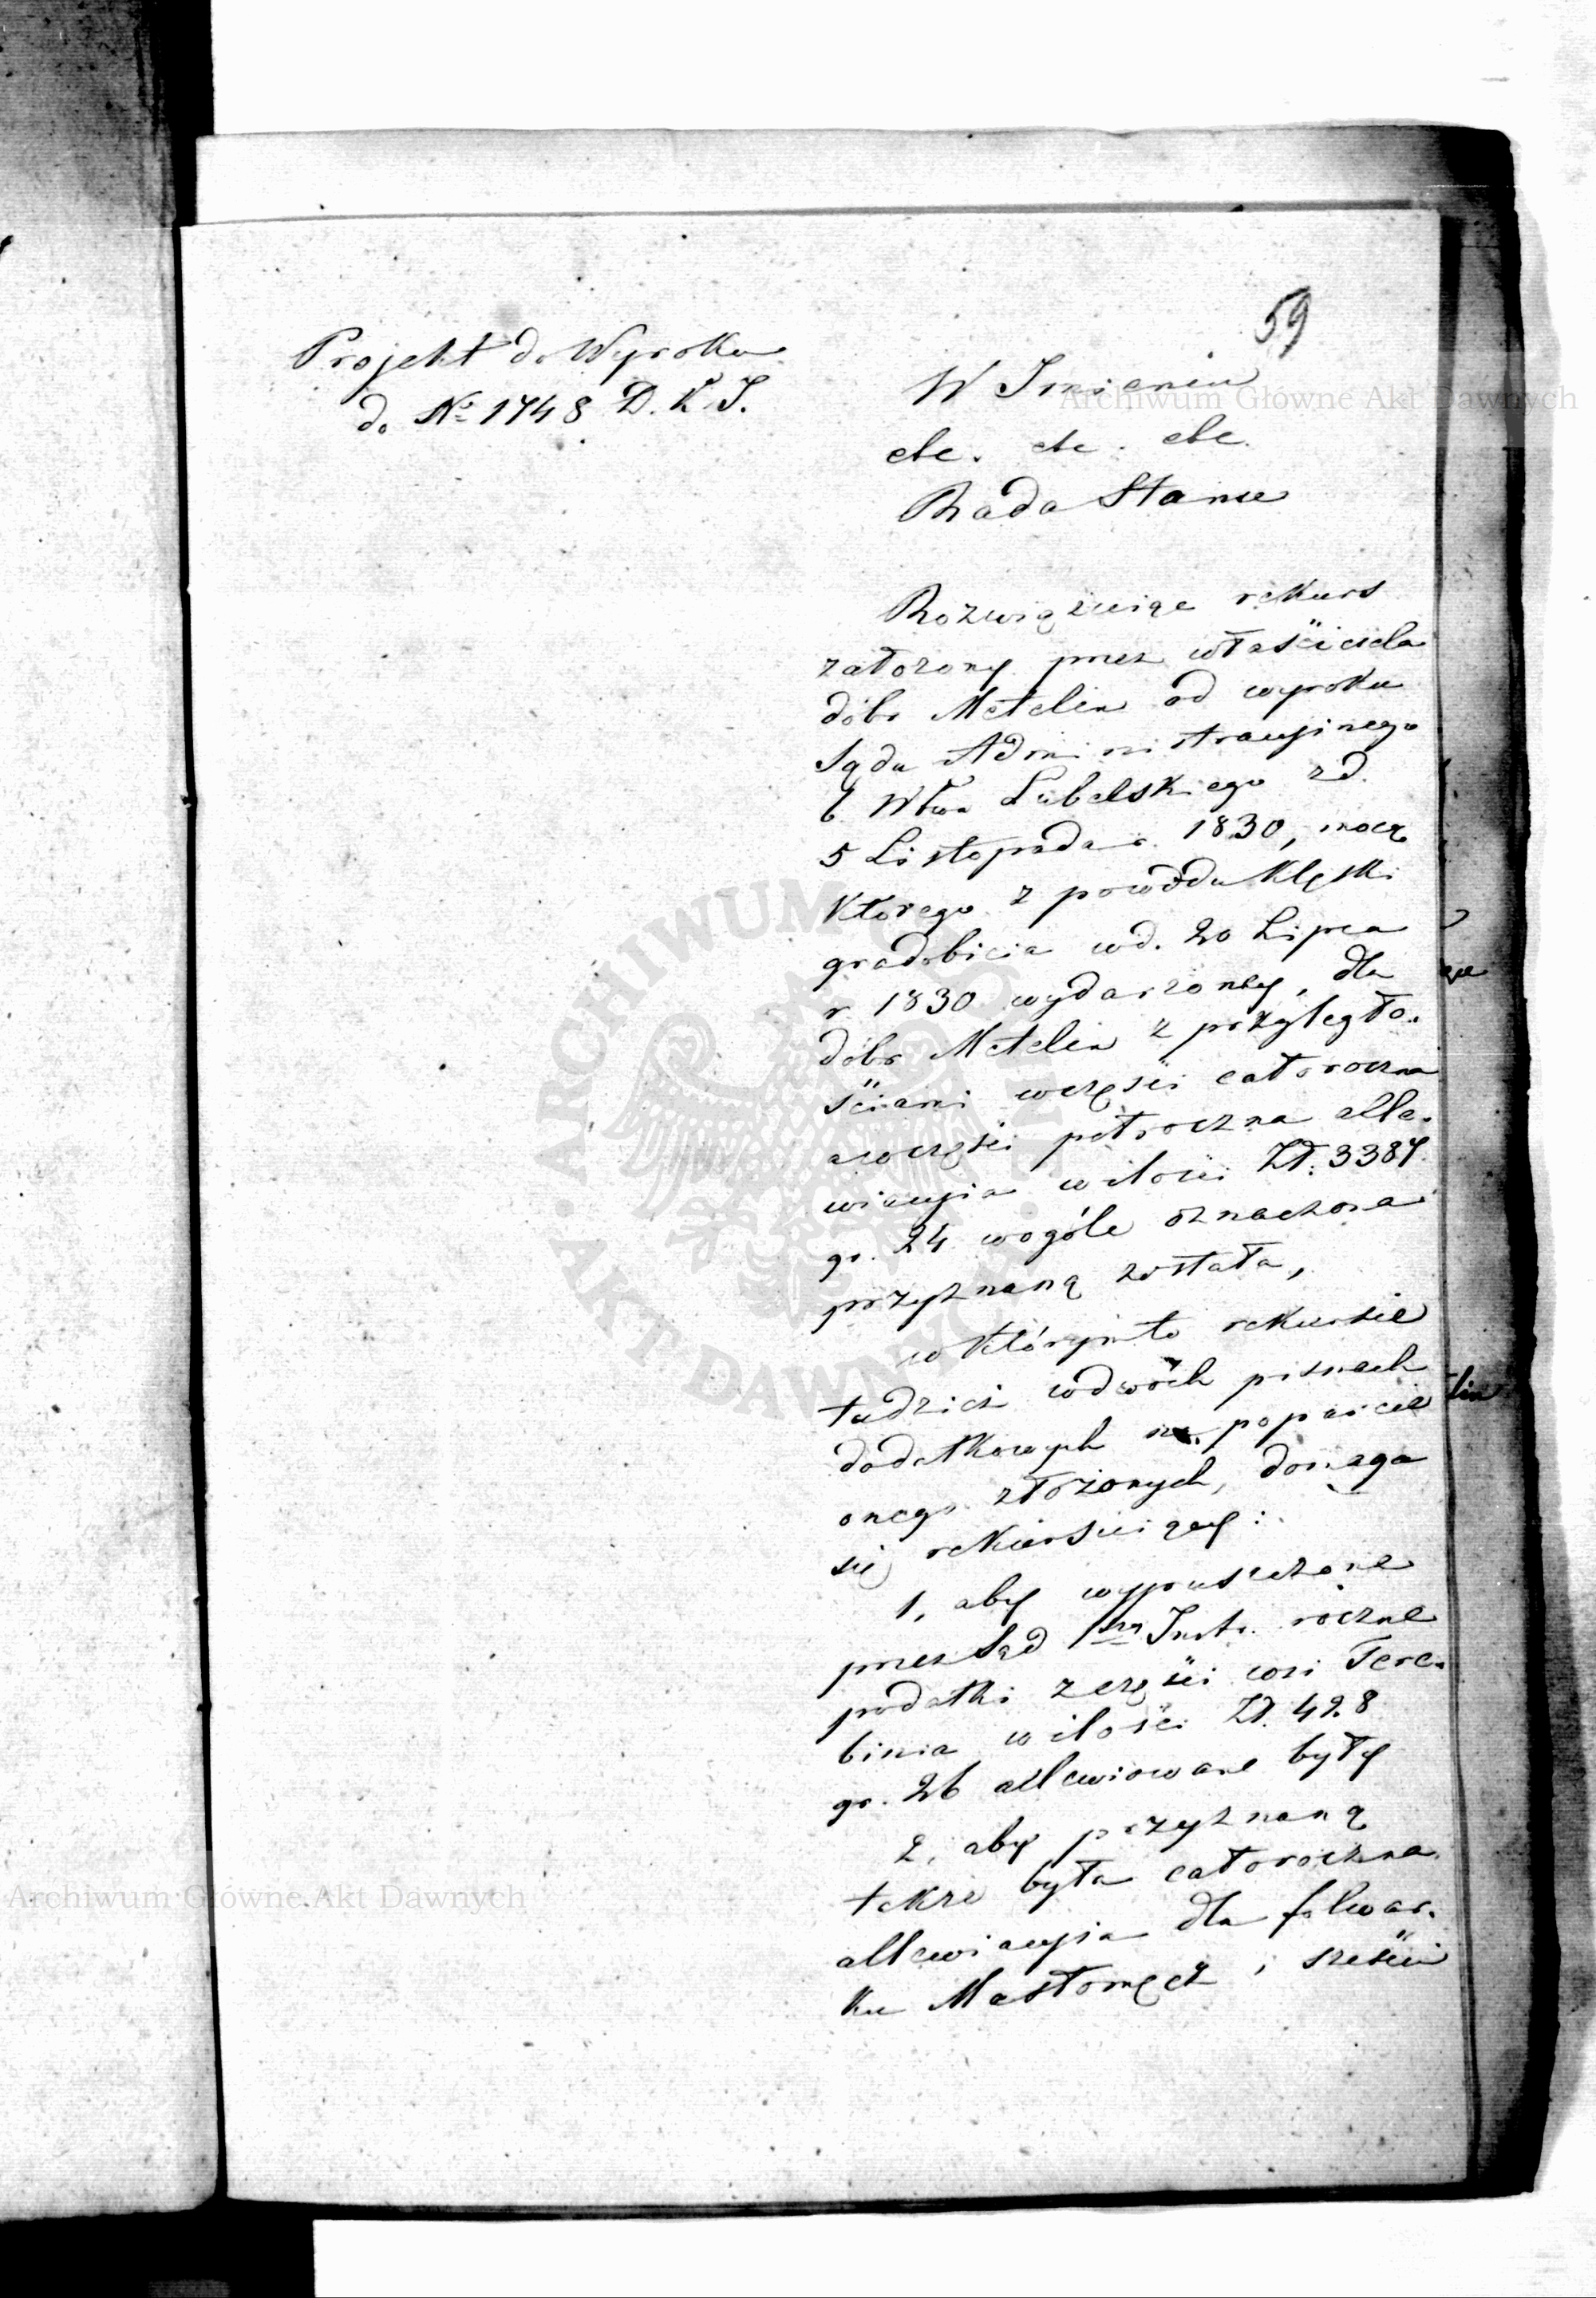 59
Projekt do Wyroku
do Nº 1748 D. K. S.
W Imieniu
etc. etc. etc.
Rada Stanu
Rozwiązując rekurs
założony przez właściciela
dóbr Metelin od wyroku
Sądu Administracyjnego
b. Wtwa Lubelskiego z d.
5 Listopada r. 1830, mocą
którego z powodu klęski
gradobicia w d. 20 Lipca
r. 1830 wydarzoney, dla
dóbr Metelin z przyległo-
ściami wczęści całoroczna
a wczęści półroczna alle-
wiacyia w ilości Zł: 3387
gr. 24 wogóle oznaczona
przyznaną została,
w którymto rekursie
tudzież wdwóch pismach
dodatkowych na poparcie
onego złożonych, domaga
się rekursuiący:
1, aby wypuszczone
przez Sąd 1ey Inst. roczne
podatki z części wsi Tere-
binia w ilości Zł. 428
gr. 26 allewiowane były
2, aby przyznaną
także była całoroczna
allewiacyia dla folwar-
ku Masłomęcz i sześciu
Archiwum Główne Akt Dawnych
Archiwum Główne Akt Dawnych
ARCHIWUM GŁÓWNE AKT DAWNYCH